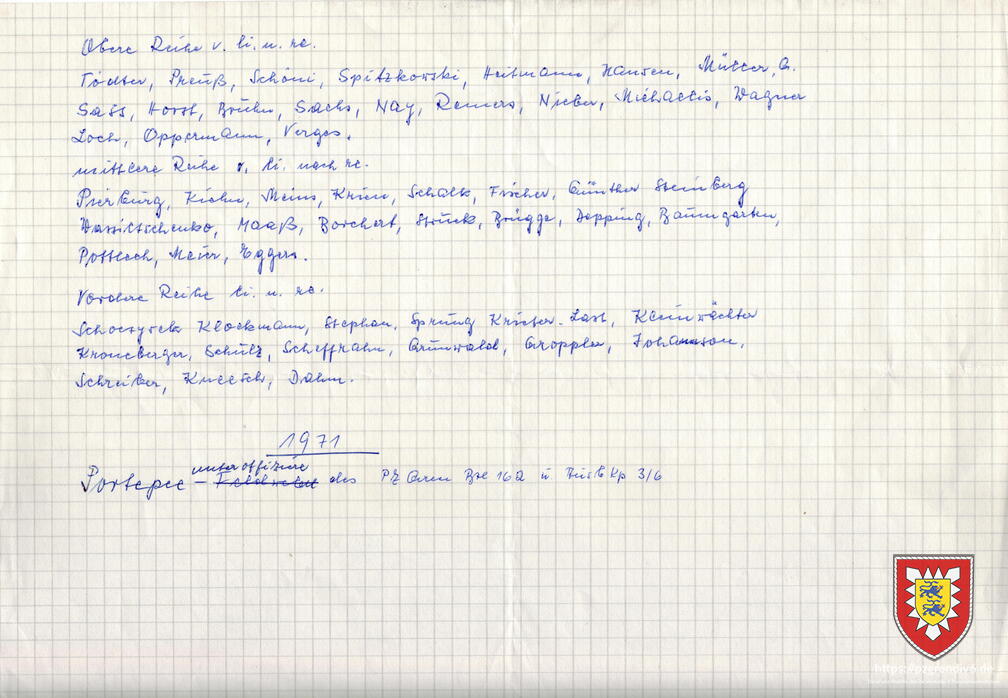 Obere Reihe v. li. n. re.
Tödter, Preuß, Schöni, Spitzkowski, Heitmann, Hansen, Müller, G.
Sass, Horst, Brühn, Sachs, Nay, Remers, Nieber, Michaelis, Wagner
Loch, Oppermann, Verges.
mittlere Reihe v. li. nach re.
Pierburg, Kiehn, Meins, Krien, Schalk, Fischer, Günther Steinberg
Wassiltschenko, Maaß, Borchert, Struck, Brügge, Depping, Baumgarten,
Pottlech, Meier, Eggers.
Vordere Reihe li. n. re.
Klockmann, Stephan, Sprung Last, Kleinwächter
Kroneberger, Schulz, Scheffrahn, Grunwald, Groppler, Johannson,
Schreiber, Dahm.
1971
unteroffiziere
Portepee – Feldwebel des PZ Gren Btl 162 u Ausb Kp 3/6
https://pzgrendiv6.de